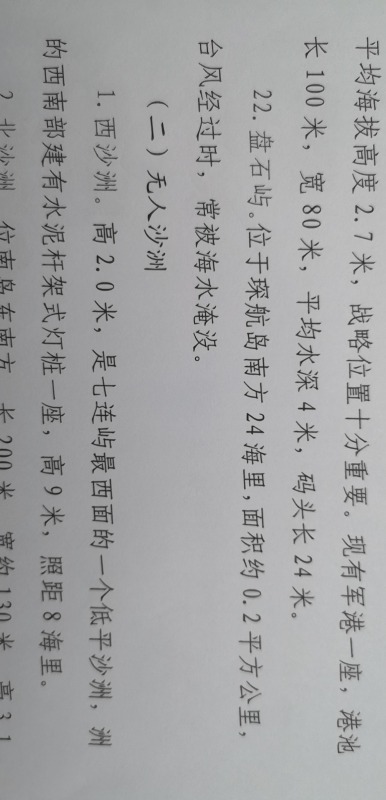 平均海拔高度2.7米，战略位置十分重要。现有军港一座，港池
长100米，宽80米，平均水深4米，码头长24米。
22.盘石屿。位于琛航岛南方24海里，面积约0.2平方公里，
台风经过时，常被海水淹没。
（二）无人沙洲
1.西沙洲。高2.0米，是七连屿最西面的一个低平沙洲，洲
的西南部建有水泥杆架式灯桩一座，高9米，照距8海里。
2.北沙洲 位南岛东南方 长200米 宽约130米 高3.1